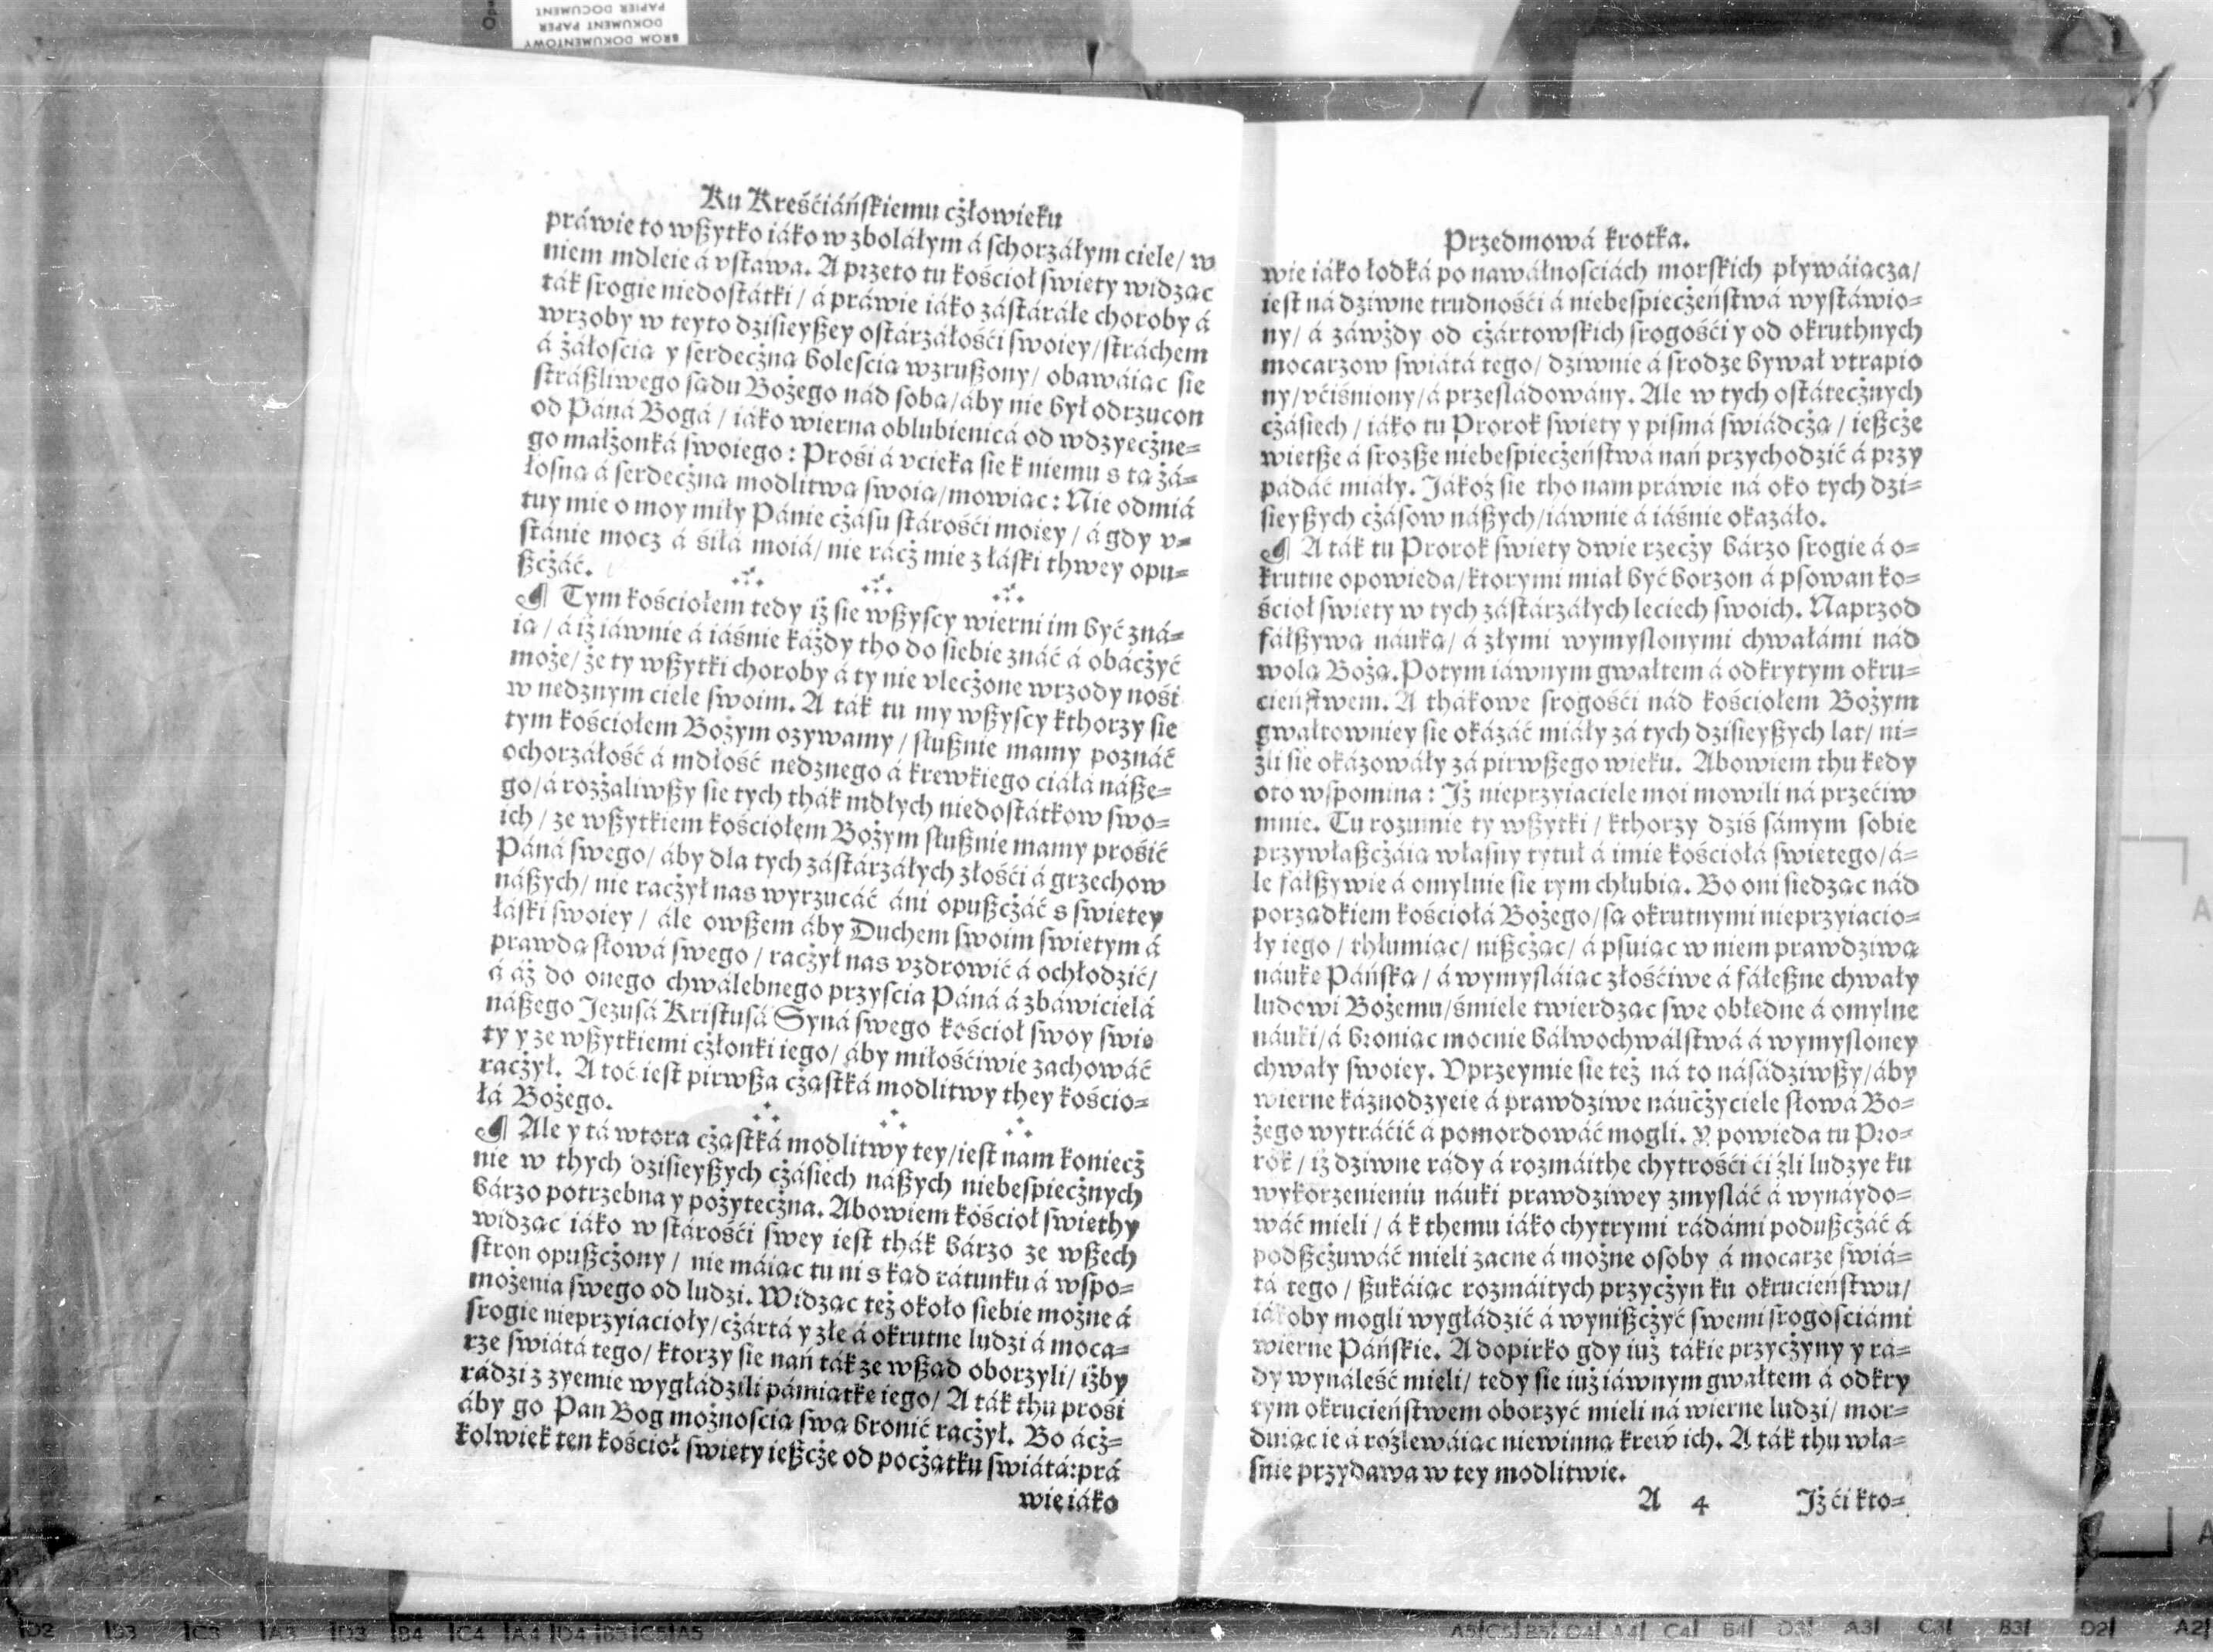 Ku Kreśćiáńſkiemu cżłowieku
práwie to wßytko iáko w zboláłym á ſchorzáłym ciele/ w
niem mdleie á vſtawa. A przeto tu kośćioł ſwięty widząc
ták ſrogie niedoſtátki / á práwie iáko záſtáráłe choroby á
wrzody w teyto dziſieyßey oſtárzáłośći ſwoiey/ ſtráchem
á żáłoſcią y ſerdecżną boleſcią wzrußony/ obawáiąc ſie
ſtráßliwego ſądu Bożego nád ſobą/ áby nie był odrzucon
od Páná Bogá / iáko wierna oblubienicá od wdzyecżne⸗
go małżonká ſwoiego : Prośi á vcieka ſie k niemu s tą żá⸗
łoſną á ſerdecżną modlitwą ſwoią/ mowiąc : Nie odmiá
tuy mie o moy miły Pánie cżáſu ſtárośći moiey / á gdy v⸗
ſtánie mocz á śiłá moiá/ nie rácż mie z łáſki thwey opu⸗
ßcżáć.
¶ Tym kośćiołem tedy iż ſie wßyſcy wierni im być zná⸗
ią / á iż iáwnie á iáśnie káżdy tho do ſiebie znáć á obácżyć
może/ że ty wßytki choroby á ty nie vlecżone wrzody nośi
w nędznym ciele ſwoim. A ták tu my wßyſcy kthorzy ſie
tym kośćiołem Bożym ozywamy / ſłußnie mamy poznáć
ochorzáłość á mdłość nędznego á krewkiego ciáłá náße⸗
go/ á rozżaliwßy ſie tych thák mdłych niedoſtátkow ſwo⸗
ich / ze wßytkiem kośćiołem Bożym ſłußnie mamy prośić
Páná ſwego/ áby dla tych záſtárzáłych złośći á grzechow
náßych/ nie racżył nas wyrzucáć áni opußcżáć s ſwiętey
łáſki ſwoiey / ále owßem áby Duchem ſwoim ſwiętym á
prawdą ſłowá ſwego / racżył nas vzdrowić á ochłodzić/
á áż do onego chwalebnego przyſcia Páná á zbáwicielá
náßego Jezuſá Kriſtuſá Syná ſwego kośćioł ſwoy ſwię
ty y ze wßytkiemi cżłonki iego/ áby miłośćiwie zachowáć
racżył. A toć ieſt pirwßa cżąſtká modlitwy they kośćio⸗
łá Bożego.
¶ Ale y tá wtora cżąſtká modlitwy tey/ ieſt nam koniecż
nie w thych dziſieyßych cżáſiech náßych niebeſpiecżnych
bárzo potrzebna y pożytecżna. Abowiem kośćioł ſwięthy
widząc iáko w ſtárośći ſwey ieſt thák bárzo ze wßech
ſtron opußcżony / nie máiąc tu ni s kąd rátunku á wſpo⸗
możenia ſwego od ludzi. Widząc też około ſiebie możne á
ſrogie nieprzyiacioły/ cżártá y złe á okrutne ludzi á moca⸗
rze ſwiátá tego/ ktorzy ſie nań ták ze wßąd oborzyli/ iżby
rádzi z zyemie wygłádzili pámiątkę iego/ A ták thu prośi
áby go Pan Bog możnoſcią ſwą bronić racżył. Bo ácż⸗
kolwiek ten kośćioł ſwięty ießcże od pocżątku ſwiátá: prá
wie iáko
Przedmowá krotka.
wie iáko łodká po nawáłnoſciách morſkich pływáiącza/
ieſt ná dziwne trudnośći á niebeſpiecżeńſtwá wyſtáwio⸗
ny/ á záwżdy od cżártowſkich ſrogośći y od okruthnych
mocarzow ſwiátá tego/ dziwnie á ſrodze bywał vtrapio
ny/ vćiśniony/ á przeſládowány. Ale w tych oſtátecżnych
cżáſiech / iáko tu Prorok ſwięty y piſmá ſwiádcżą / ießcże
więtße á ſrozße niebeſpiecżeńſtwá nań przychodzić á przy
pádáć miáły. Jákoż ſie tho nam práwie ná oko tych dzi⸗
ſieyßych cżáſow náßych/ iáwnie á iáśnie okazáło.
¶ A ták tu Prorok ſwięty dwie rzecży bárzo ſrogie á o⸗
krutne opowieda/ ktorymi miał być borzon á pſowan ko⸗
śćioł ſwięty w tych záſtárzáłych leciech ſwoich. Naprzod
fáłßywą náuką/ á złymi wymyſlonymi chwałámi nád
wolą Bożą. Potym iáwnym gwałtem á odkrytym okru⸗
cieńſtwem. A thákowe ſrogośći nád kośćiołem Bożym
gwałtowniey ſie okázáć miáły zá tych dziſieyßych lat/ ni⸗
żli ſie okázowáły zá pirwßego wieku. Abowiem thu kędy
oto wſpomina : Jż nieprzyiaciele moi mowili ná przećiw
mnie. Tu rozumie ty wßytki / kthorzy dziś ſámym ſobie
przywłaßcżáią własny tytuł á imię kośćiołá ſwiętego/ á⸗
le fałßywie á omylnie ſie tym chłubią. Bo oni ſiedząc nád
porządkiem kośćiołá Bożego/ ſą okrutnymi nieprzyiacio⸗
ły iego / thłumiąc/ nißcżąc/ á pſuiąc w niem prawdziwą
náukę Páńſką / á wymyſláiąc złośćiwe á fáłeßne chwały
ludowi Bożemu/ śmiele twierdząc ſwe obłędne á omylne
náuki/ á broniąc mocnie báłwochwálſtwá á wymyſloney
chwały ſwoiey. Vprzeymie ſie też ná to násádziwßy/ áby
wierne káznodzyeie á prawdziwe náucżyciele ſłowá Bo⸗
żego wytráćić á pomordowáć mogli. Y powieda tu Pro⸗
rok / iż dziwne rády á rozmáithe chytrośći ći źli ludzye ku
wykorzenieniu náuki prawdziwey zmyſláć á wynáydo⸗
wáć mieli / á k themu iáko chytrymi rádámi podußcżáć á
podßcżuwáć mieli zacne á możne oſoby á mocarze ſwiá⸗
tá tego / ßukáiąc rozmáitych przycżyn ku okrucieńſtwu/
iákoby mogli wygłádzić á wynißcżyć ſwemi ſrogoſciámi
wierne Páńſkie. A dopirko gdy iuż takie przycżyny y ra⸗
dy wynáleść mieli/ tedy ſie iuż iáwnym gwałtem á odkry
tym okrucieńſtwem oborzyć mieli ná wierne ludzi/ mor⸗
duiąc ie á rozlewáiąc niewinną krew ich. A ták thu wła⸗
ſnie przydawa w tey modlitwie.
A 4 Jż ći kto⸗
BROM DOKUMENTOWY
DOKUMENT PAPER
PAPIER DOCUMENT
D2 B3 C3 A3 D3 B4 C4 A4 D4 B5 C5 A5
A5 C5 B5 D4 A4 C4 B4 D3 A3 C3 B3 D2 A2